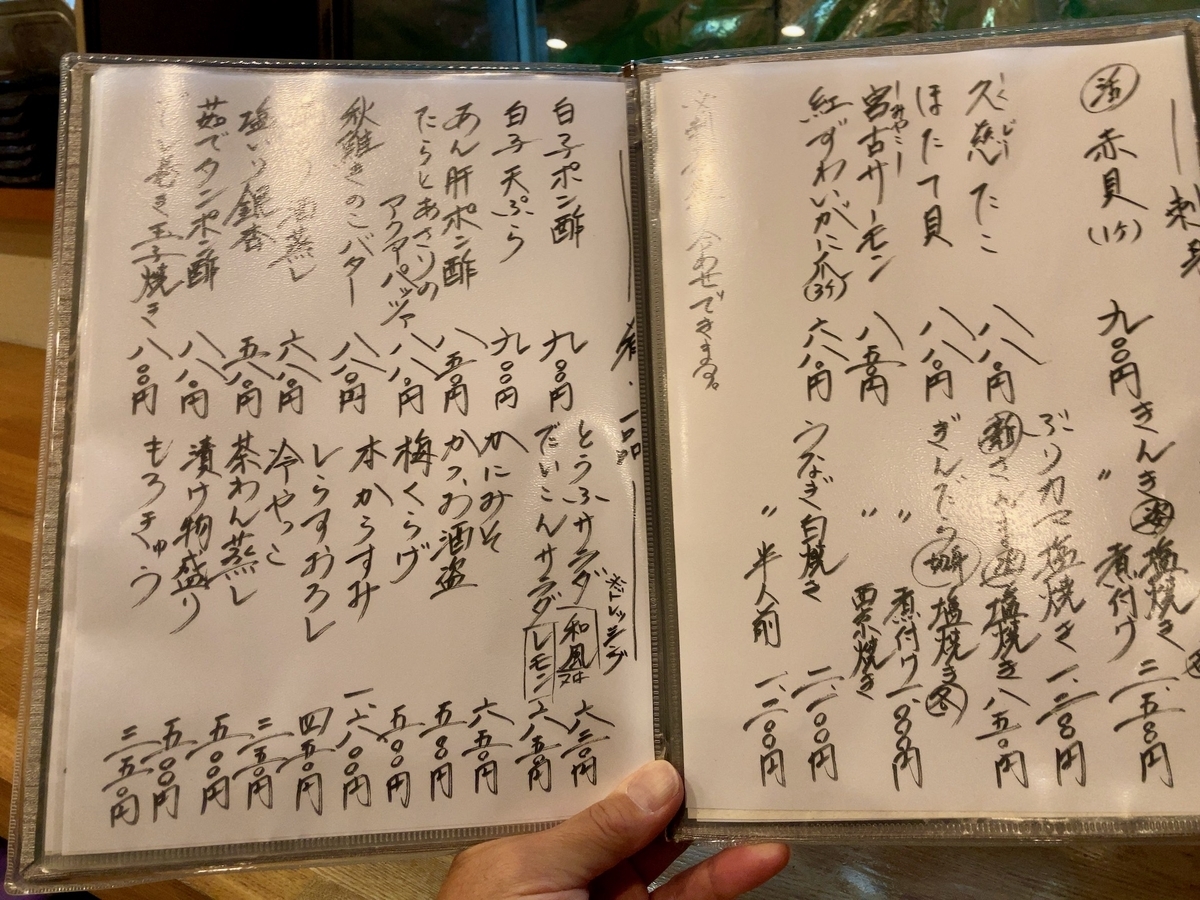 刺身
活 赤貝(1ケ) 九〇〇円
久慈たこ 八八〇円
くじ
ほたて貝 八八〇円
宮古サーモン 八五〇円
みやこ
紅ずわいがに爪(3ケ) 六八〇円
合わせできます。
きんき 姿 塩焼き 二、五〇〇円
〃 煮付け
ぶりカマ塩焼き 一、二〇〇円
新さんま 塩焼き 八五〇円
ぎんだら 切身 塩焼き
〃 煮付け 一、〇〇〇円
〃 西京焼き
うなぎ白焼き 二、二〇〇円
〃 半人前 一、二〇〇円
肴・一品
白子ポン酢 九〇〇円
白子天ぷら 九〇〇円
あん肝ポン酢 八五〇円
たらとあさりの
アクアパッツァ 八八〇円
秋鮭きのこバター 八八〇円
酒蒸し 六八〇円
塩いり銀杏 五八〇円
茹でタンポン酢 八八〇円
巻き玉子焼き 八〇〇円
とうふサラダ 和風 六二〇円
ドレッシング
だいこんサラダ レモン 六五〇円
かにみそ 六五〇円
かつお酒盗 五〇〇円
梅くらげ 五〇〇円
本からすみ 一、六八〇円
しらすおろし 四五〇円
冷やっこ 三五〇円
茶わん蒸し 五〇〇円
漬け物盛り 五〇〇円
もろきゅう 三五〇円